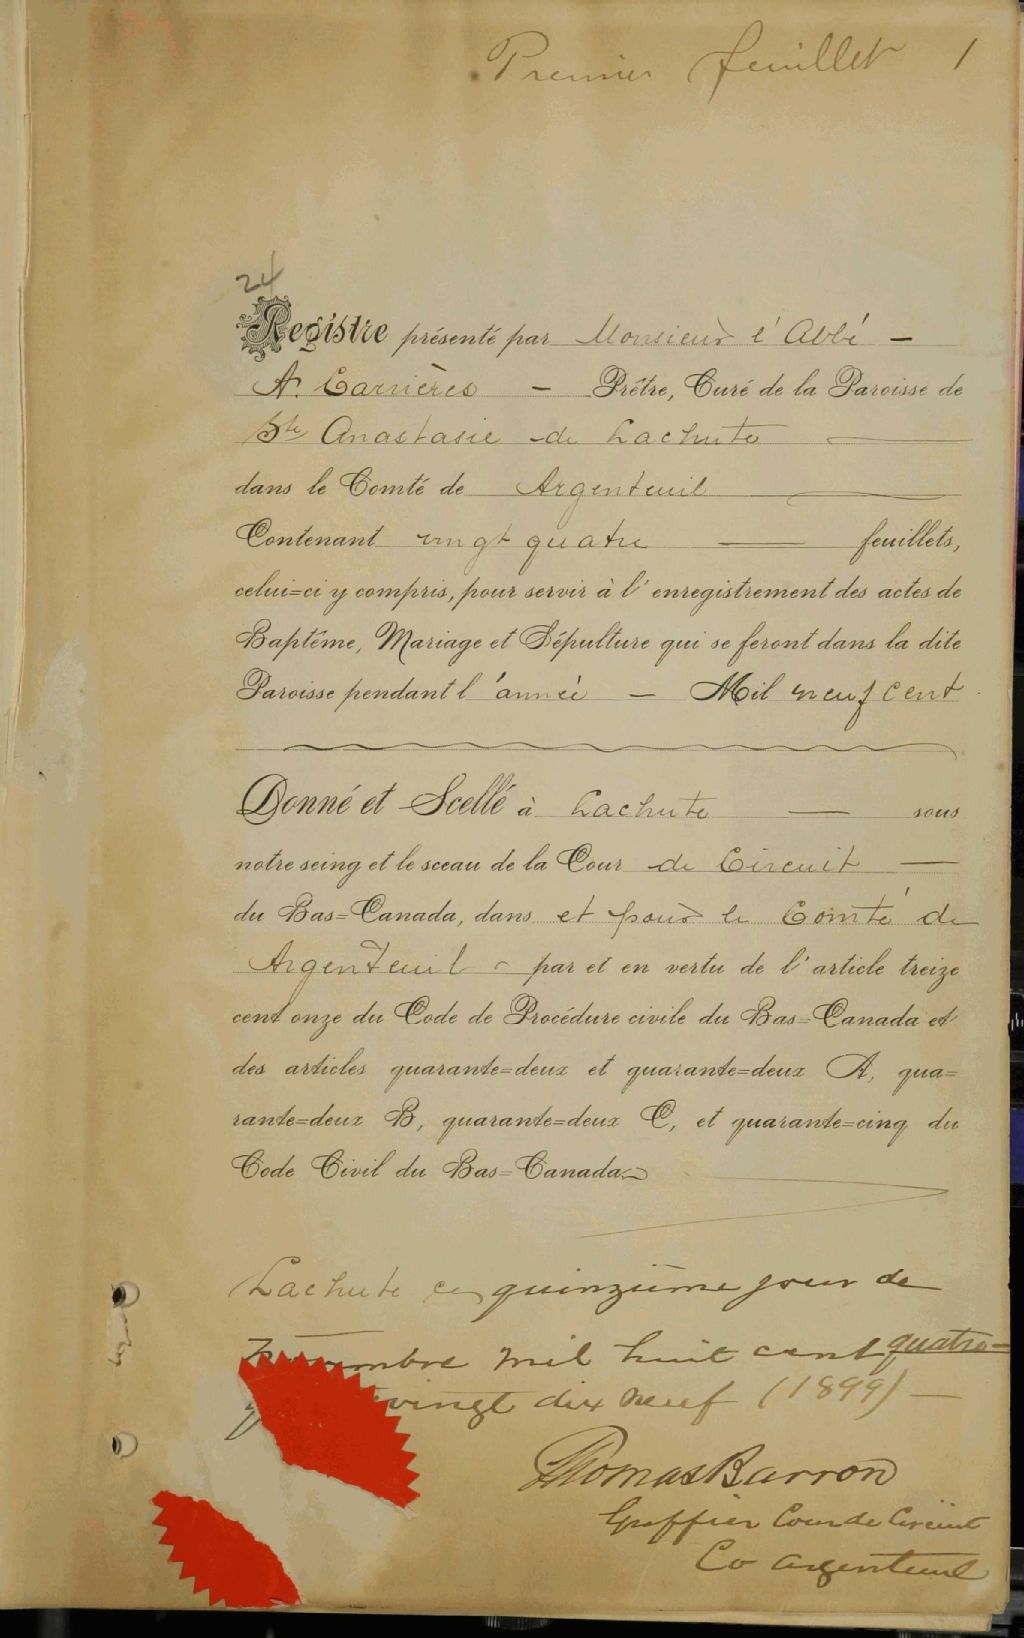 Premier feuillet 1
24
Registre présenté par Monsieur l'Abbé —
A. Carrières — Prêtre, Curé de la Paroisse de
Ste Anastasie de Lachute
dans le Comté de Argenteuil
Contenant vingt quatre — feuillets,
celui=ci y compris, pour servir à l'enregistrement des actes de
Baptême, Mariage et Sépulture qui se feront dans la dite
Paroisse pendant l'année — Mil neuf cent
Donné et Scellé à Lachute — sous
notre seing et le sceau de la Cour de Circuit —
du Bas=Canada, dans et pour le Comté de
Argenteuil - par et en vertu de l'article treize
cent onze du Code de Procédure civile du Bas=Canada et
des articles quarante=deux et quarante=deux A, qua=
rante=deux B, quarante=deux C, et quarante=cinq du
Code Civil du Bas=Canada
Lachute ce quinzième jour de
mil huit cent quatre-
vingt dix neuf (1899) —
Thomas Barron
Greffier Cour de Circuit
Co Argenteuil